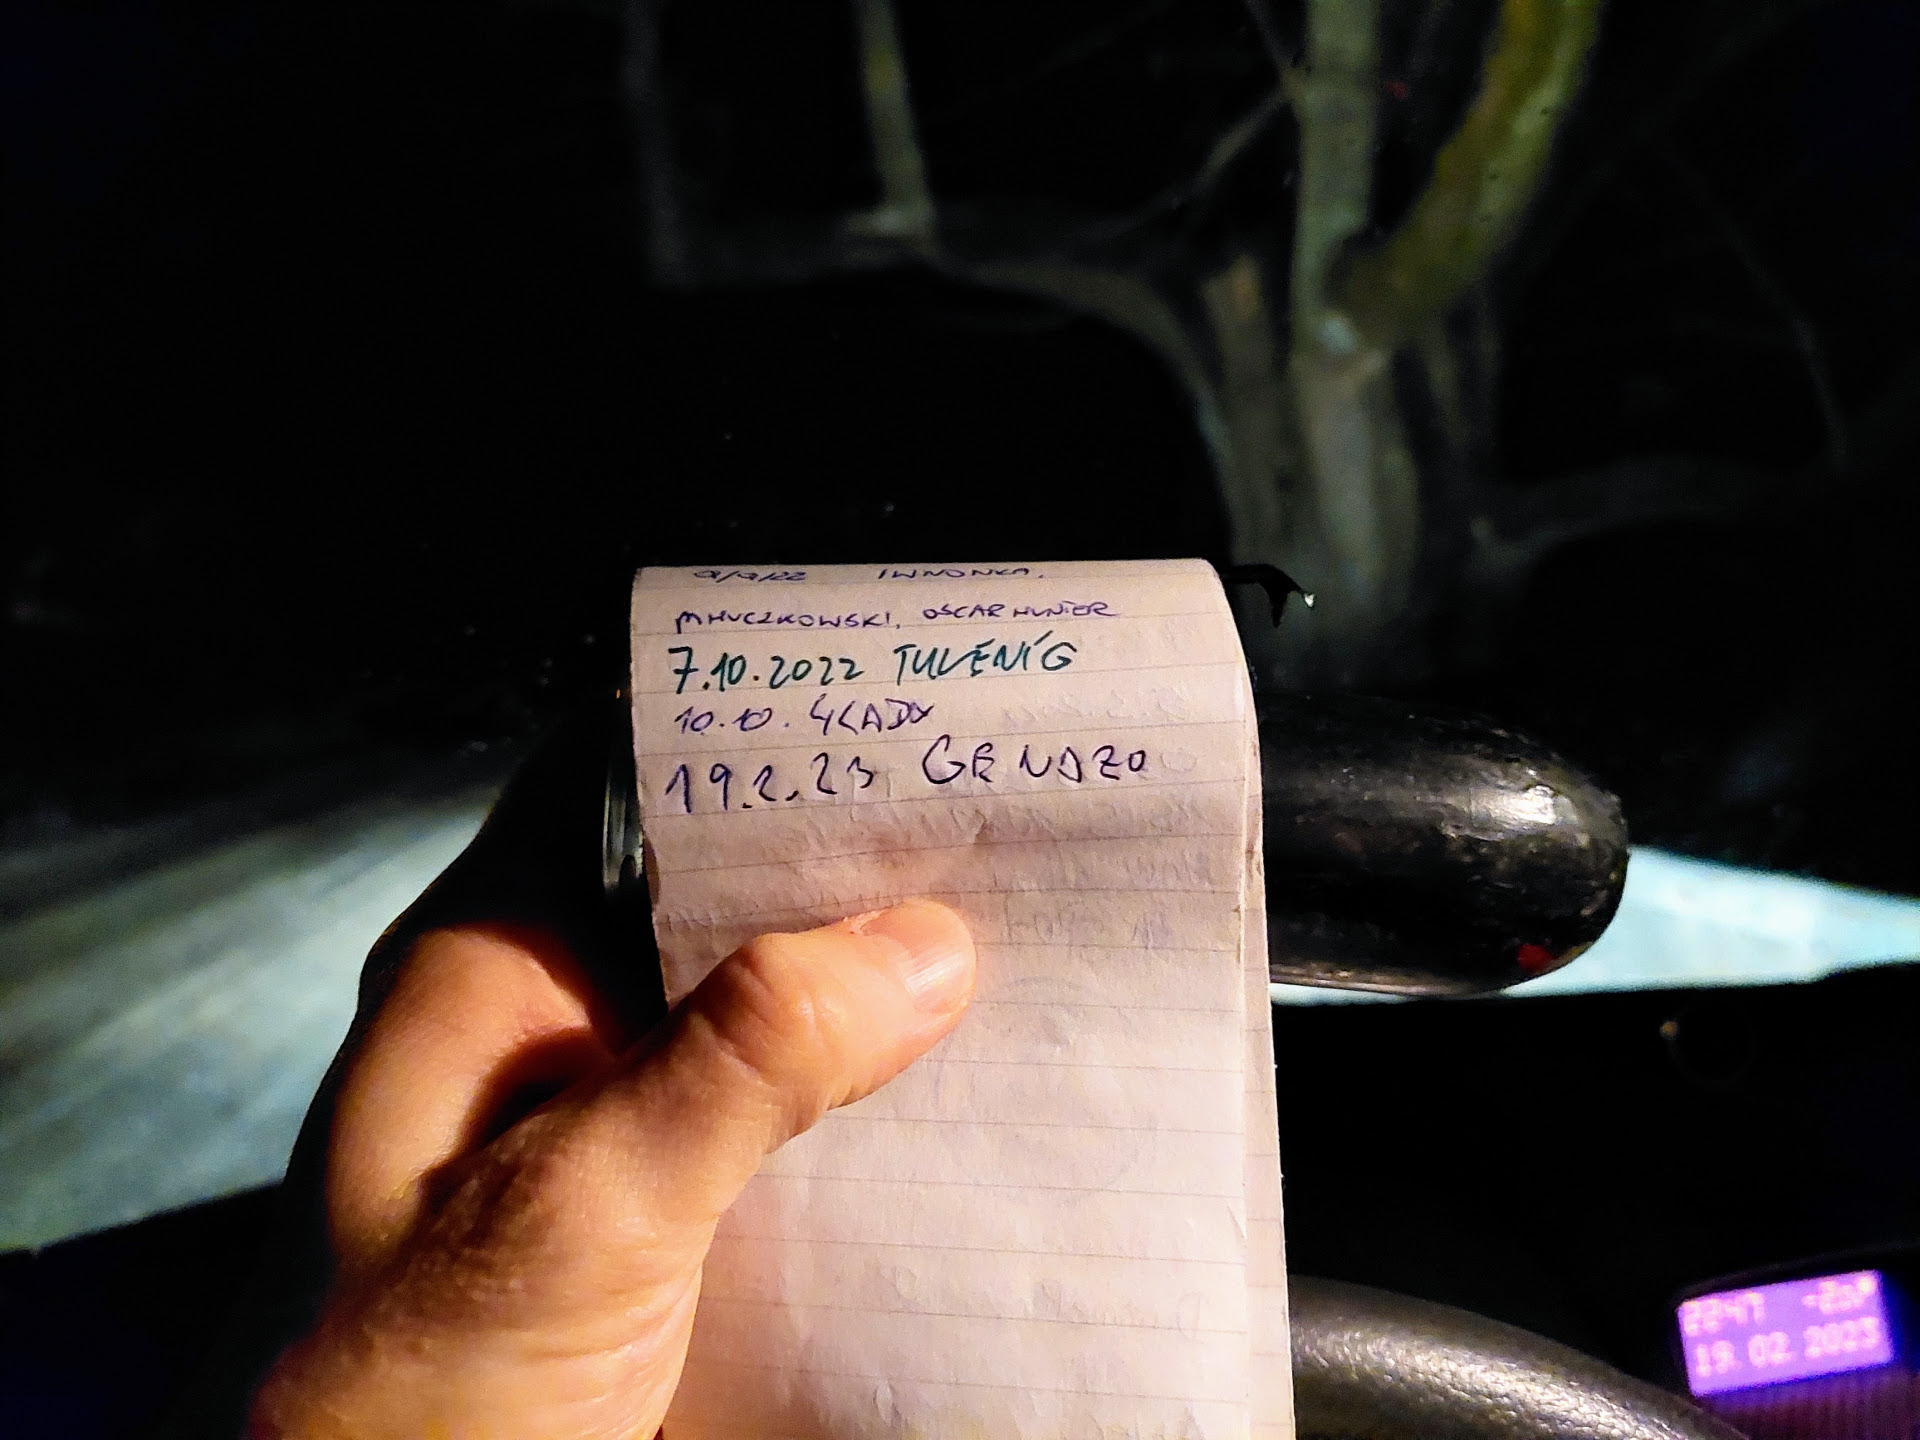 9/9/22 IWNONKA,
MHUCZKOWSKI, OSCAR HUNTER
7.10.2022 TULENIG
10.10. 4KADY
19.2.23 GENDZO
22:47
19.02.2023